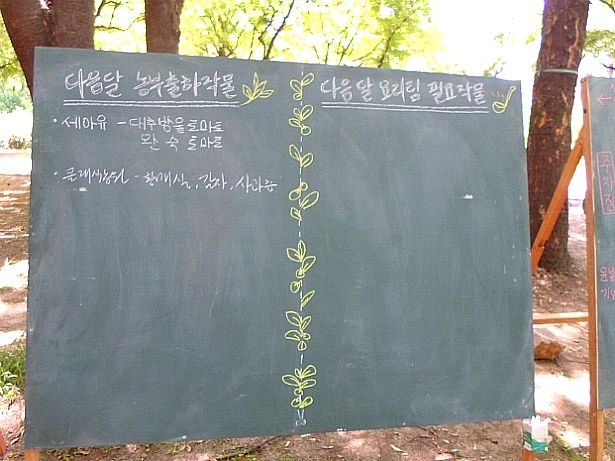 다음달 농부출하작물
· 세아유 - 대추방울토마토
완숙 토마토
· 클래식농원 - 황매실, 감자, 사과즙
다음달 요리팀 필요작물